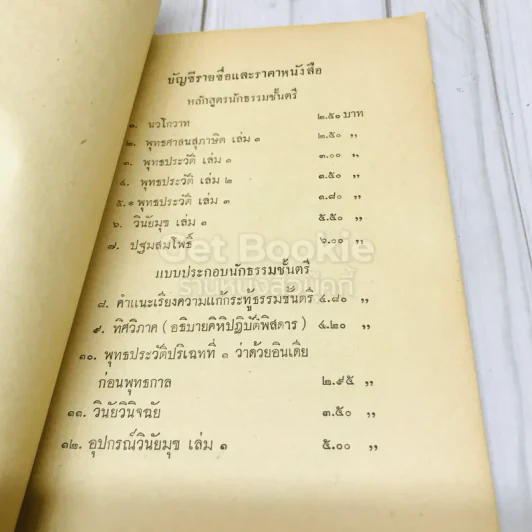 บัญชีรายชื่อและราคาหนังสือ
หลักสูตรนักธรรมชั้นตรี
๑. นวโกวาท ๒.๕๐ บาท
๒. พุทธศาสนสุภาษิต เล่ม ๑ ๒.๕๐ ,,
๓. พุทธประวัติ เล่ม ๑ ๓.๐๐ ,,
๔. พุทธประวัติ เล่ม ๒ ๓.๕๐ ,,
๕.* พุทธประวัติ เล่ม ๓ ๑.๘๐ ,,
๖. วินัยมุข เล่ม ๑ ๕.๕๐ ,,
๗. ปฐมสมโพธิ์ ๖.๐๐ ,,
Get Bookie
แบบประกอบนักธรรมชั้นตรี
ร้านหนังสือบุ๊คกี้
๘. คำแนะเรียงความแก้กระทู้ธรรมชั้นตรี ๔.๘๐ ,,
๙. ทิศวิภาค ( อธิบายคิหิปฏิบัติพิสดาร ) ๔.๒๐ ,,
๑๐. พุทธประวัติปริเฉทที่ ๑ ว่าด้วยอินเดีย
ก่อนพุทธกาล ๒.๙๕ ,,
๑๑. วินัยวินิจฉัย ๓.๕๐ ,,
๑๒. อุปกรณ์วินัยมุข เล่ม ๑ ๕.๐๐ ,,